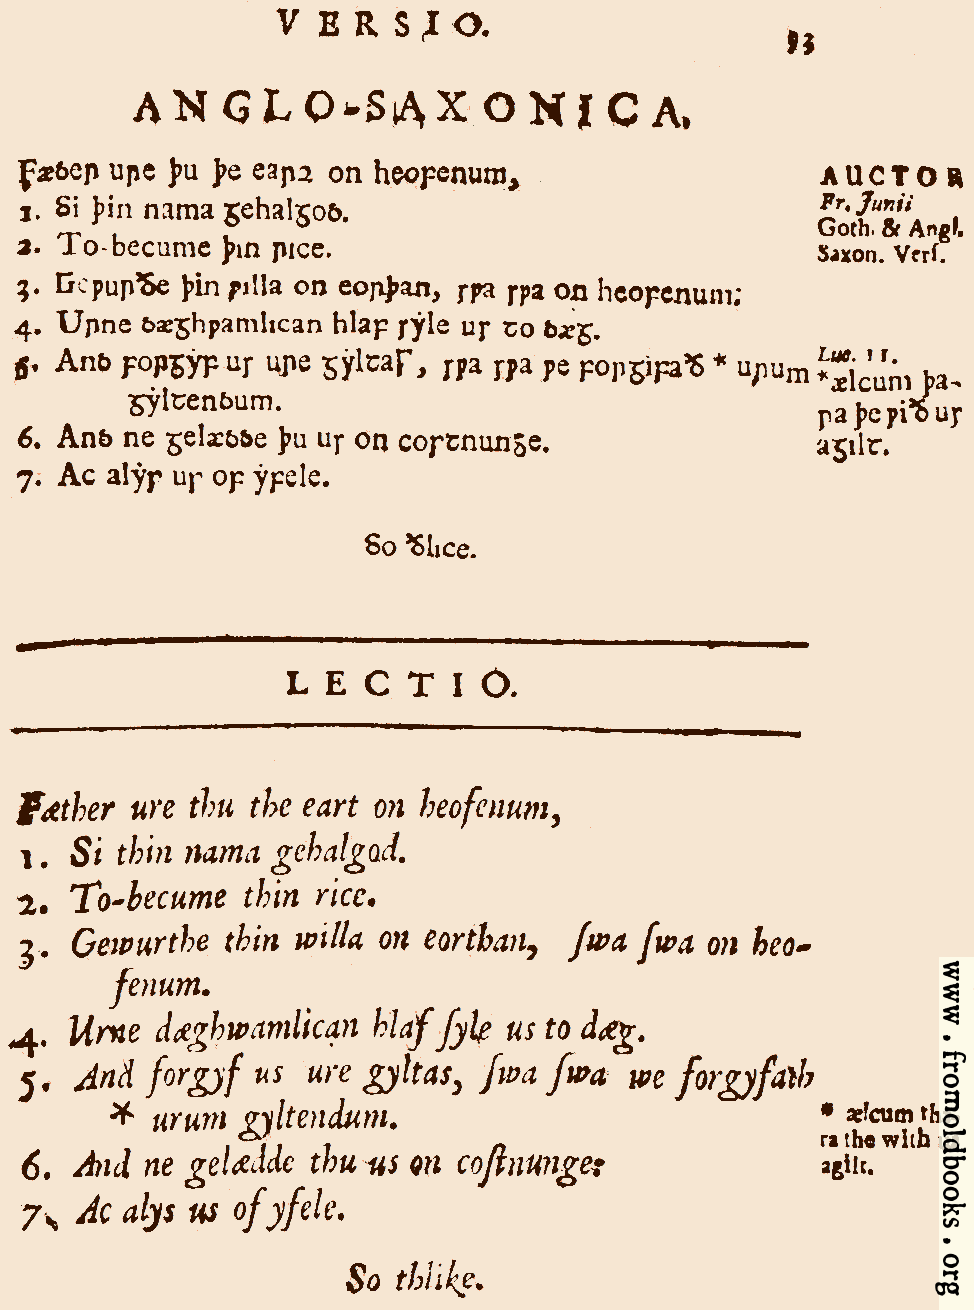 VERSIO.
93
ANGLO-SAXONICA,
Fæder ure þu þe eart on heofenum,
1. Si þin nama gehalgod.
2. To-becume þin rice.
3. Geƿurðe þin ƿilla on eorþan, sƿa sƿa on heofenum;
4. Urne dæghƿamlican hlaf sẏle us to dæg.
5. And forgẏf us ure gẏltas, sƿa sƿa ƿe forgifað * urum
gẏltendum.
6. And ne gelædde þu us on costnunge.
7. Ac alẏs us of ẏfele.
So ðlice.
AUCTOR
Fr. Junii
Goth. & Angl.
Saxon. Verſ.
Luc. 11.
*ælcum þa-
ra þe ƿið us
agilt.
LECTIO.
Fæther ure thu the eart on heofenum,
1. Si thin nama gehalgod.
2. To-becume thin rice.
3. Gewurthe thin willa on eorthan, ſwa ſwa on heo-
fenum.
4. Urne dæghwamlican hlaf ſyle us to dæg.
5. And forgyf us ure gyltas, ſwa ſwa we forgyfath
* urum gyltendum.
6. And ne gelædde thu us on coſtnunge:
7. Ac alys us of yfele.
So thlike.
* ælcum th
ra the with
agilt.
www.fromoldbooks.org